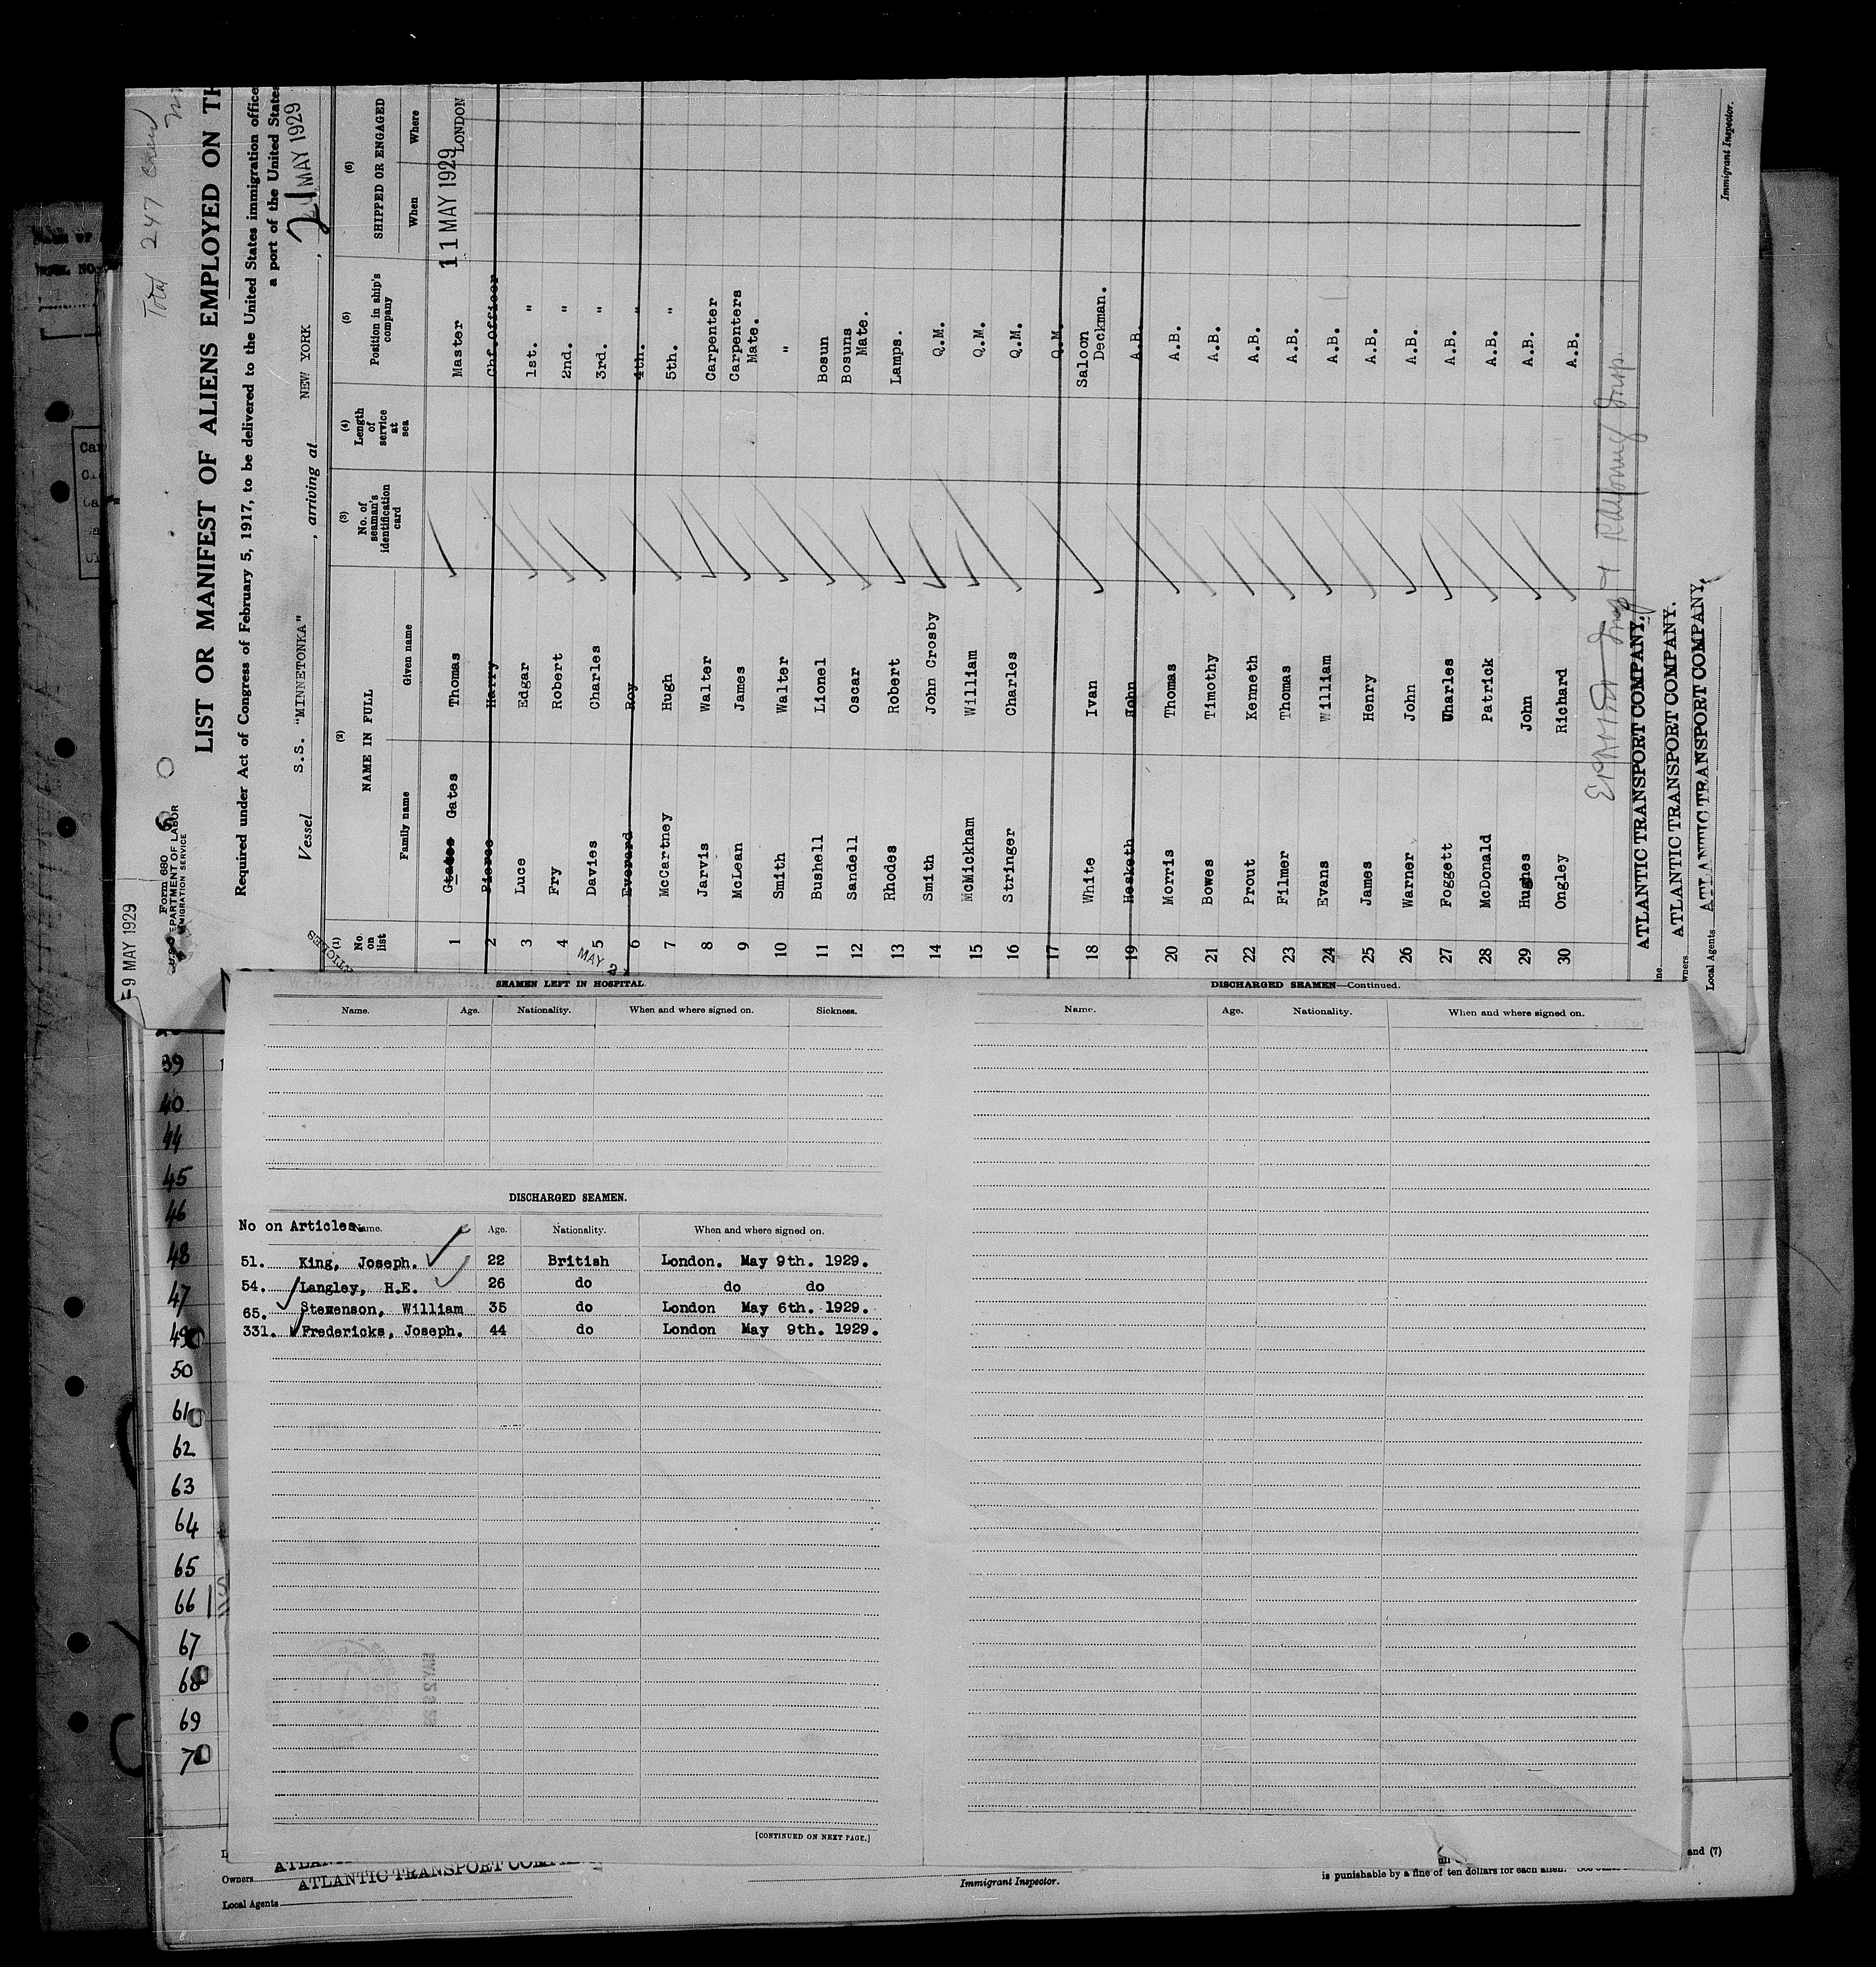 Total 247 crew
9 MAY 1929
Form 680
DEPARTMENT OF LABOR
IMMIGRATION SERVICE
LIST OR MANIFEST OF ALIENS EMPLOYED ON TH
Required under Act of Congress of February 5, 1917, to be delivered to the United States immigration office
a port of the United States
Vessel S.S. "MINNETONKA", arriving at NEW YORK, 21 MAY 1929
(1) (2) (3) (4) (5) (6)
No. on list NAME IN FULL No. of seaman's identification card Length of service at sea Position in ship's company SHIPPED OR ENGAGED
Family name Given name When Where
1 Gtates Gates Thomas Master 11 MAY 1929 LONDON
2 Pierce Harry Chf.Officer
3 Luce Edgar 1st. "
4 Fry Robert 2nd. "
5 Davies Charles 3rd. "
6 Everard Roy 4th. "
7 McCartney Hugh 5th. "
8 Jarvis Walter Carpenter
9 McLean James Carpenters Mate.
10 Smith Walter "
11 Bushell Lionel Bosun
12 Sandell Oscar Bosuns Mate.
13 Rhodes Robert Lamps.
14 Smith John Crosby Q.M.
15 McMickham William Q.M.
16 Stringer Charles Q.M.
17 Q.M.
18 White Ivan Saloon Deckman.
19 Hesketh John A.B.
20 Morris Thomas A.B.
21 Bowes Timothy A.B.
22 Prout Kenneth A.B.
23 Filmer Thomas A.B.
24 Evans William A.B.
25 James Henry A.B.
26 Warner John A.B.
27 Foggett Charles A.B.
28 McDonald Patrick A.B.
29 Hughes John A.B.
30 Ongley Richard A.B.
ATLANTIC TRANSPORT COMPANY.
ATLANTIC TRANSPORT COMPANY.
Local Agents ATLANTIC TRANSPORT COMPANY.
Immigrant Inspector.
SEAMEN LEFT IN HOSPITAL.
Name. Age. Nationality. When and where signed on. Sickness.
DISCHARGED SEAMEN.
No on Articles Name. Age. Nationality. When and where signed on.
51. King, Joseph. 22 British London. May 9th. 1929.
54. Langley, H.E. 26 do do do
65. Stevenson, William 35 do London May 6th. 1929.
331. Fredericks, Joseph. 44 do London May 9th. 1929.
[CONTINUED ON NEXT PAGE.]
DISCHARGED SEAMEN—Continued.
Name. Age. Nationality. When and where signed on.
39
40
44
45
46
48
47
49
50
61
62
63
64
65
66
67
68
69
70
and (7)
is punishable by a fine of ten dollars for each alien.
Owners ATLANTIC TRANSPORT COMPANY
Local Agents
Immigrant Inspector.